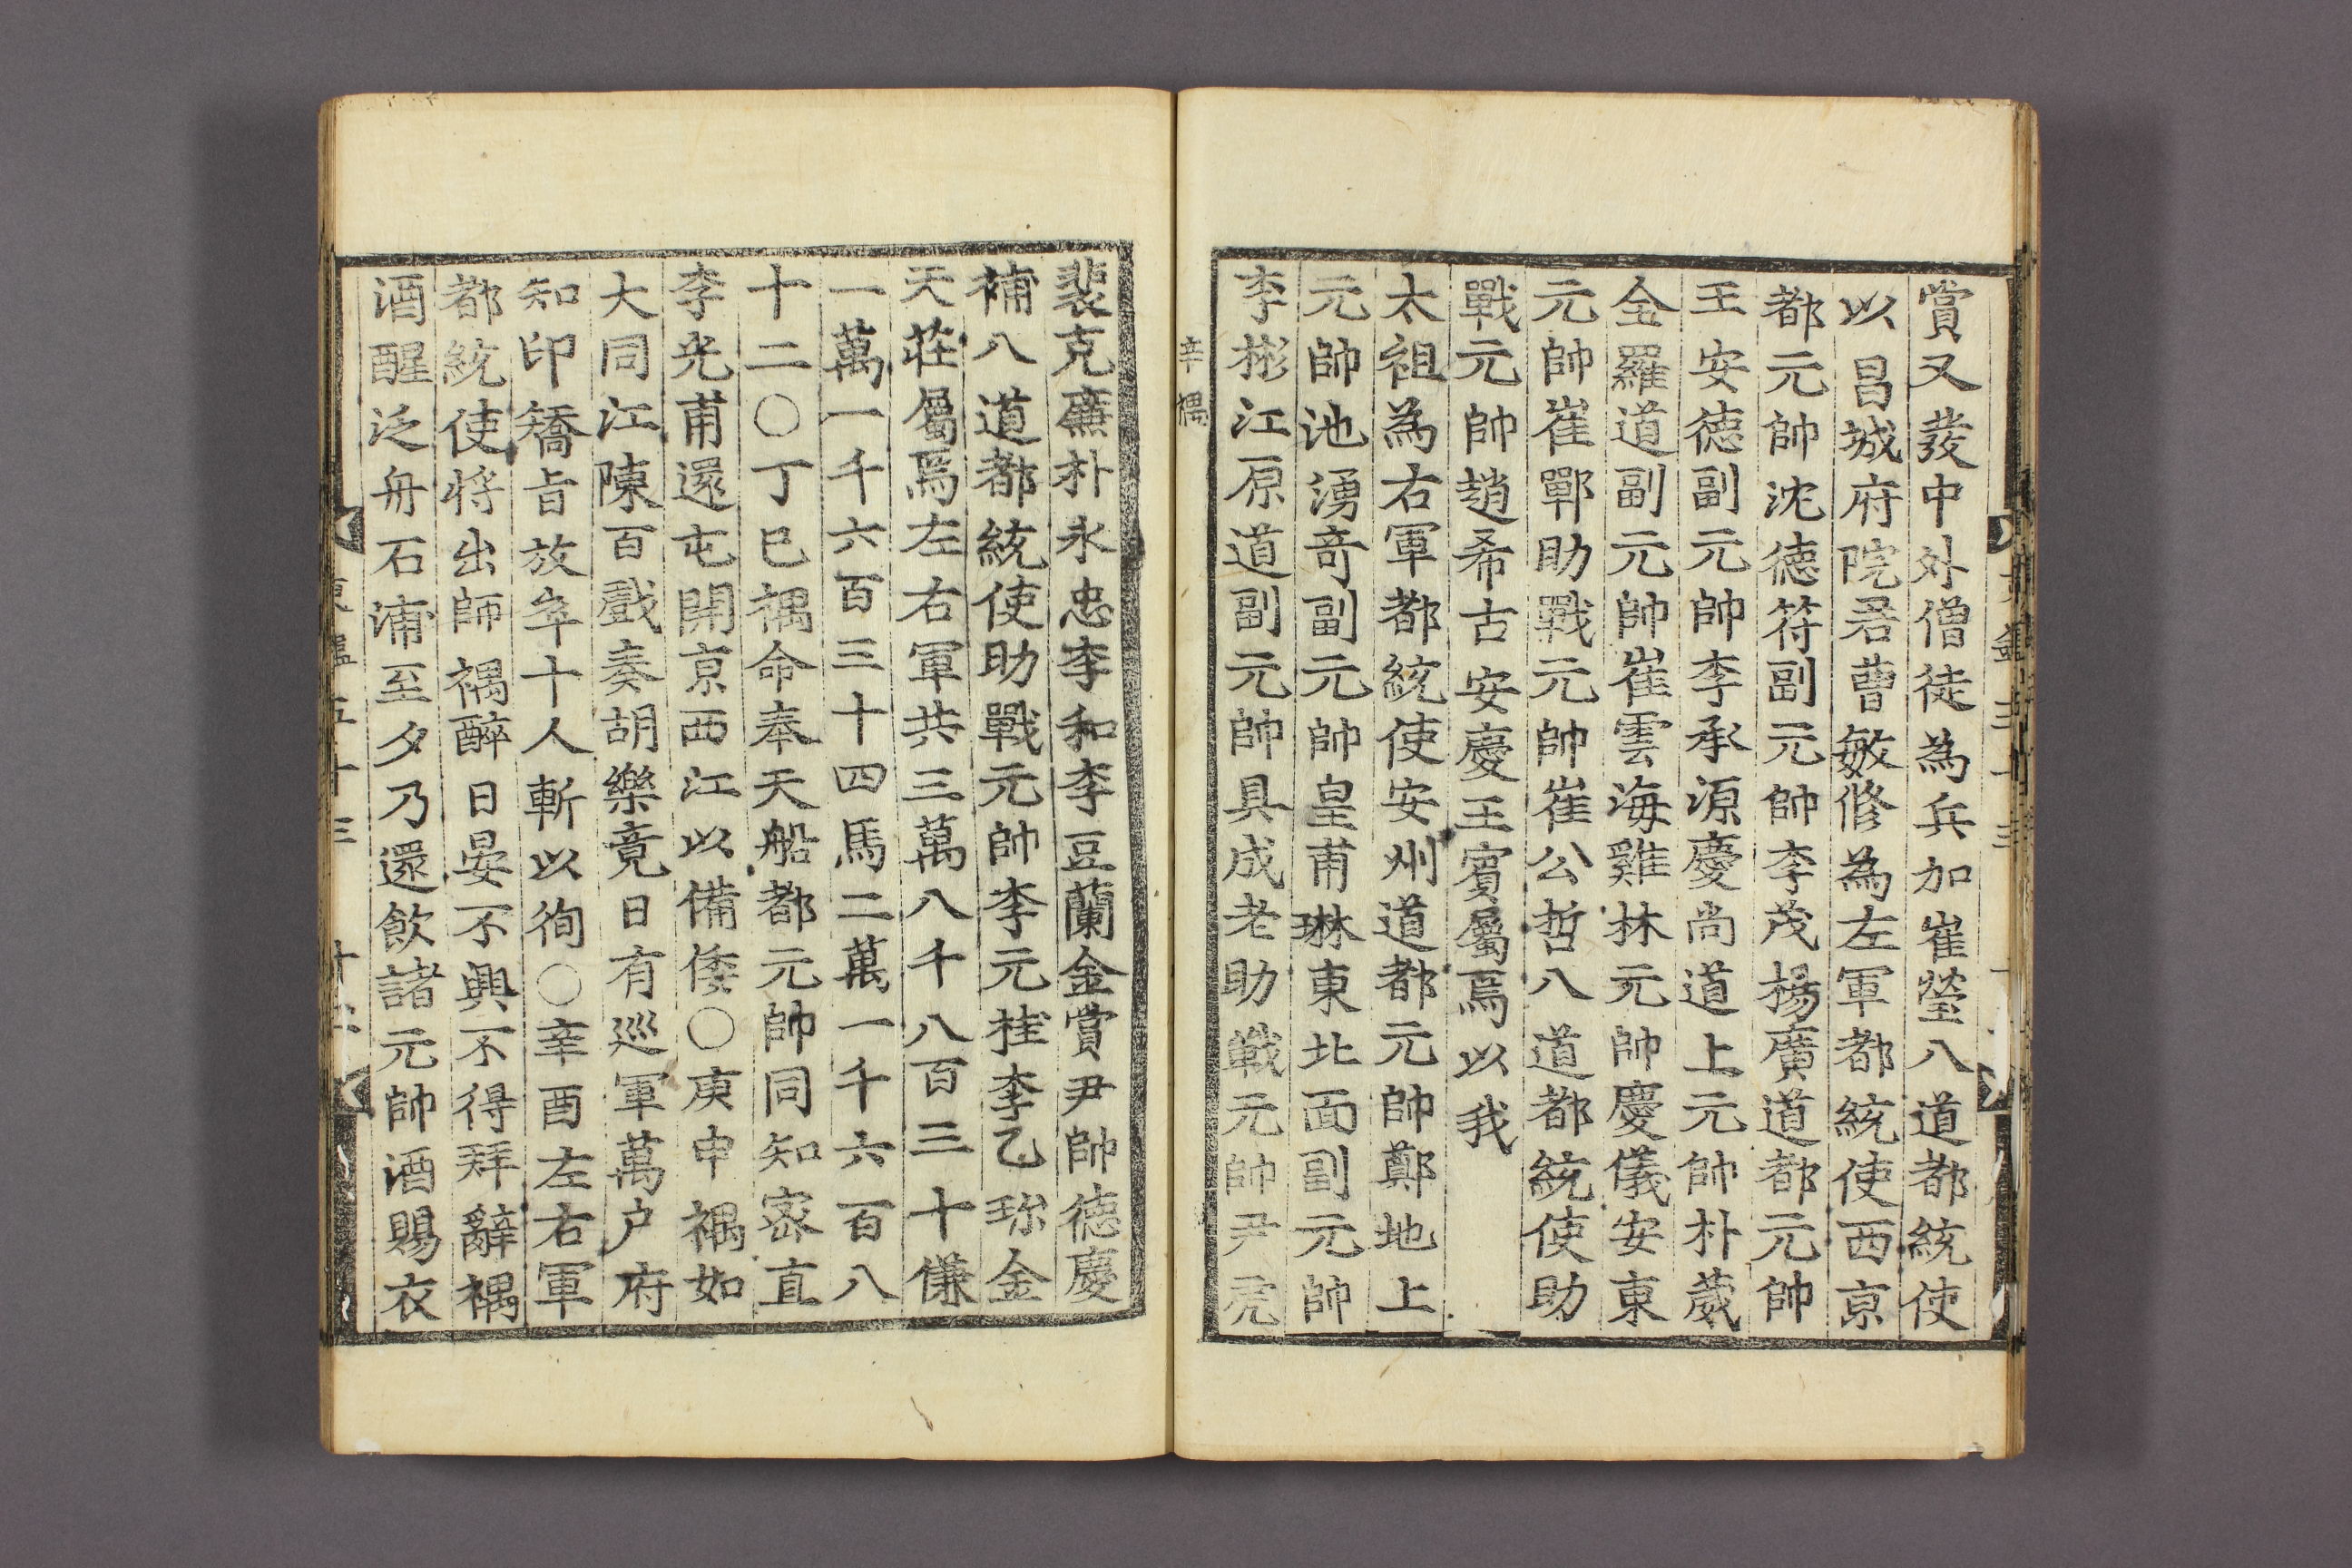 賞又發中外僧徒為兵加崔瑩八道都統使
以昌城府院君曹敏修為左軍都統使西京
都元帥沈德符副元帥李茂楊廣道都元帥
王安德副元帥李承源慶尚道上元帥朴葳
全羅道副元帥崔雲海雞林元帥慶儀安東
元帥崔鄲助戰元帥崔公哲八道都統使助
戰元帥趙希古安慶王賓屬焉以我
太祖為右軍都統使安州道都元帥鄭地上
元帥池湧奇副元帥皇甫琳東北面副元帥
李彬江原道副元帥具成老助戰元帥尹虎
辛禑
裴克廉朴永忠李和李豆蘭金賞尹師德慶
補八道都統使助戰元帥李元桂李乙珍金
天莊屬焉左右軍共三萬八千八百三十傔
一萬一千六百三十四馬二萬一千六百八
十二〇丁巳禑命奉天船都元帥同知密直
李光甫還屯開京西江以備倭〇庚申禑如
大同江陳百戲奏胡樂竟日有巡軍萬户府
知印矯旨放牟十人斬以徇〇辛酉左右軍
都統使将出師禑醉日晏不興不得拜辭禑
酒醒泛舟石浦至夕乃還飲諸元帥酒賜衣